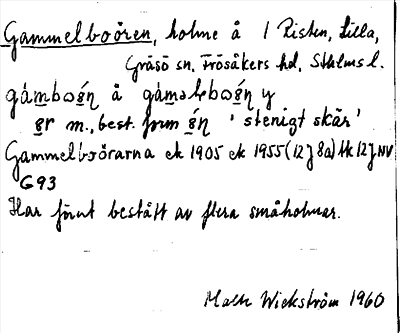 Gammelboören, holme å l Risten, Lilla,
Gräsö sn, Frösåkers hd, Sthlms l.
gámboεń å gáməlboεń y
er m., best. form én 'stenigt skär'
Gammelboörarna ek 1905 ek 1955 (12J 8a) tk 12J NV
G93
Har förut bestått av flera småholmar.
Mats Wickström 1960